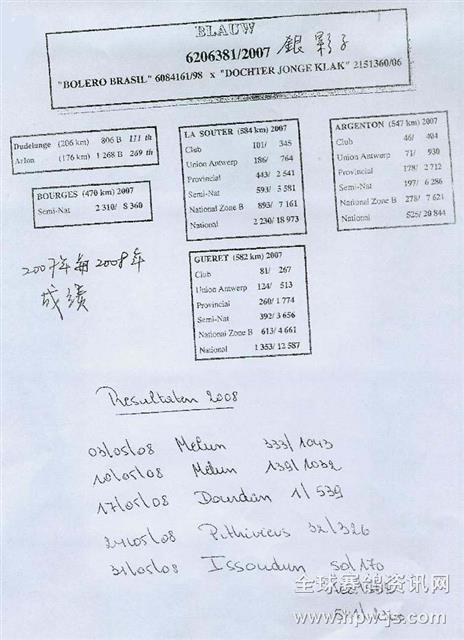 BLAUW
6206381/2007 銀影子
"BOLERO BRASIL" 6084161/98 x "DOCHTER JONGE KLAK" 2151360/06
Dudelange (206 km) 806 B 171 th
Arlon (176 km) 1 268 B 269 th
BOURGES (470 km) 2007
Semi-Nat 2 310/ 8 360
LA SOUTER (584 km) 2007
Club 101/ 345
Union Antwerp 186/ 764
Provincial 443/ 2 541
Semi-Nat 593/ 5 581
National Zone B 893/ 7 161
National 2 230/ 18 973
ARGENTON (547 km) 2007
Club 46/ 404
Union Antwerp 71/ 930
Provincial 178/ 2 712
Semi-Nat 197/ 6 286
National Zone B 278/ 7 621
National 525/ 20 844
GUERET (582 km) 2007
Club 81/ 267
Union Antwerp 124/ 513
Provincial 260/ 1 774
Semi-Nat 392/ 3 656
National Zone B 613/ 4 661
National 1 353/ 12 587
2007年每2008年
成绩
Resultaten 2008
03/05/08 Melun 333/1043
10/05/08 Melun 139/1032
17/05/08 Dourdan 1/539
24/05/08 Pithiviers 32/326
31/05/08 Issoudun 50/170
全球赛鸽资讯网
www.npwjs.com